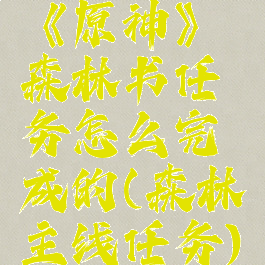 《原神》
森林书任
务怎么完
成的(森林
主线任务)